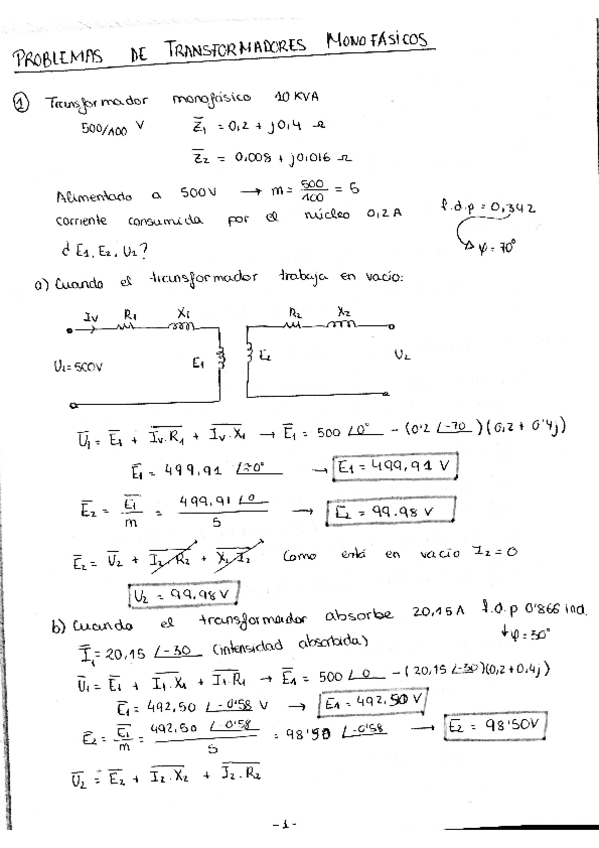 PROBLEMAS DE TRANSFORMADORES MONOFÁSICOS
① Transformador monofásico 10 KVA
500/100 V Z̅₁ = 0,2 + j0,4 Ω
Z̅₂ = 0,008 + j0,016 Ω
Alimentado a 500V → m = 500/100 = 5
corriente consumida por el núcleo 0,2 A f.d.p = 0,342
¿E₁, E₂, U₂? φ = 70°
a) Cuando el transformador trabaja en vacío:
Iv R₁ X₁ R₂ X₂
U₁=500V E₁ E₂ U₂
U̅₁ = E̅₁ + I̅v.R̅₁ + I̅v.X̅₁ → E̅₁ = 500 ∠0° − (0'2 ∠-70)(0,2 + 0'4j)
E̅₁ = 499,91 ∠≃0° → E₁ = 499,91 V
E̅₂ = E̅₁/m = 499,91 ∠0/5 → E̅₂ = 99.98 V
E̅₂ = U̅₂ + I̅₂.R̅₂ + X̅₂.I̅₂ Como está en vacío I₂ = 0
U₂ = 99,98V
b) Cuando el transformador absorbe 20,15A f.d.p 0'866 ind.
↓φ = 30°
I̅₁ = 20,15 ∠-30 (intensidad absorbida)
U̅₁ = E̅₁ + I̅₁.X̅₁ + I̅₁.R̅₁ → E̅₁ = 500 ∠0 − (20,15 ∠-30)(0,2+0,4j)
E̅₁ = 492,50 ∠-0'58 V → E̅₁ = 492,50 V
E̅₂ = E̅₁/m = 492,50 ∠-0'58/5 = 98'50 ∠-0'58 → E̅₂ = 98'50V
U̅₂ = E̅₂ + I̅₂.X̅₂ + I̅₂.R̅₂
-1-